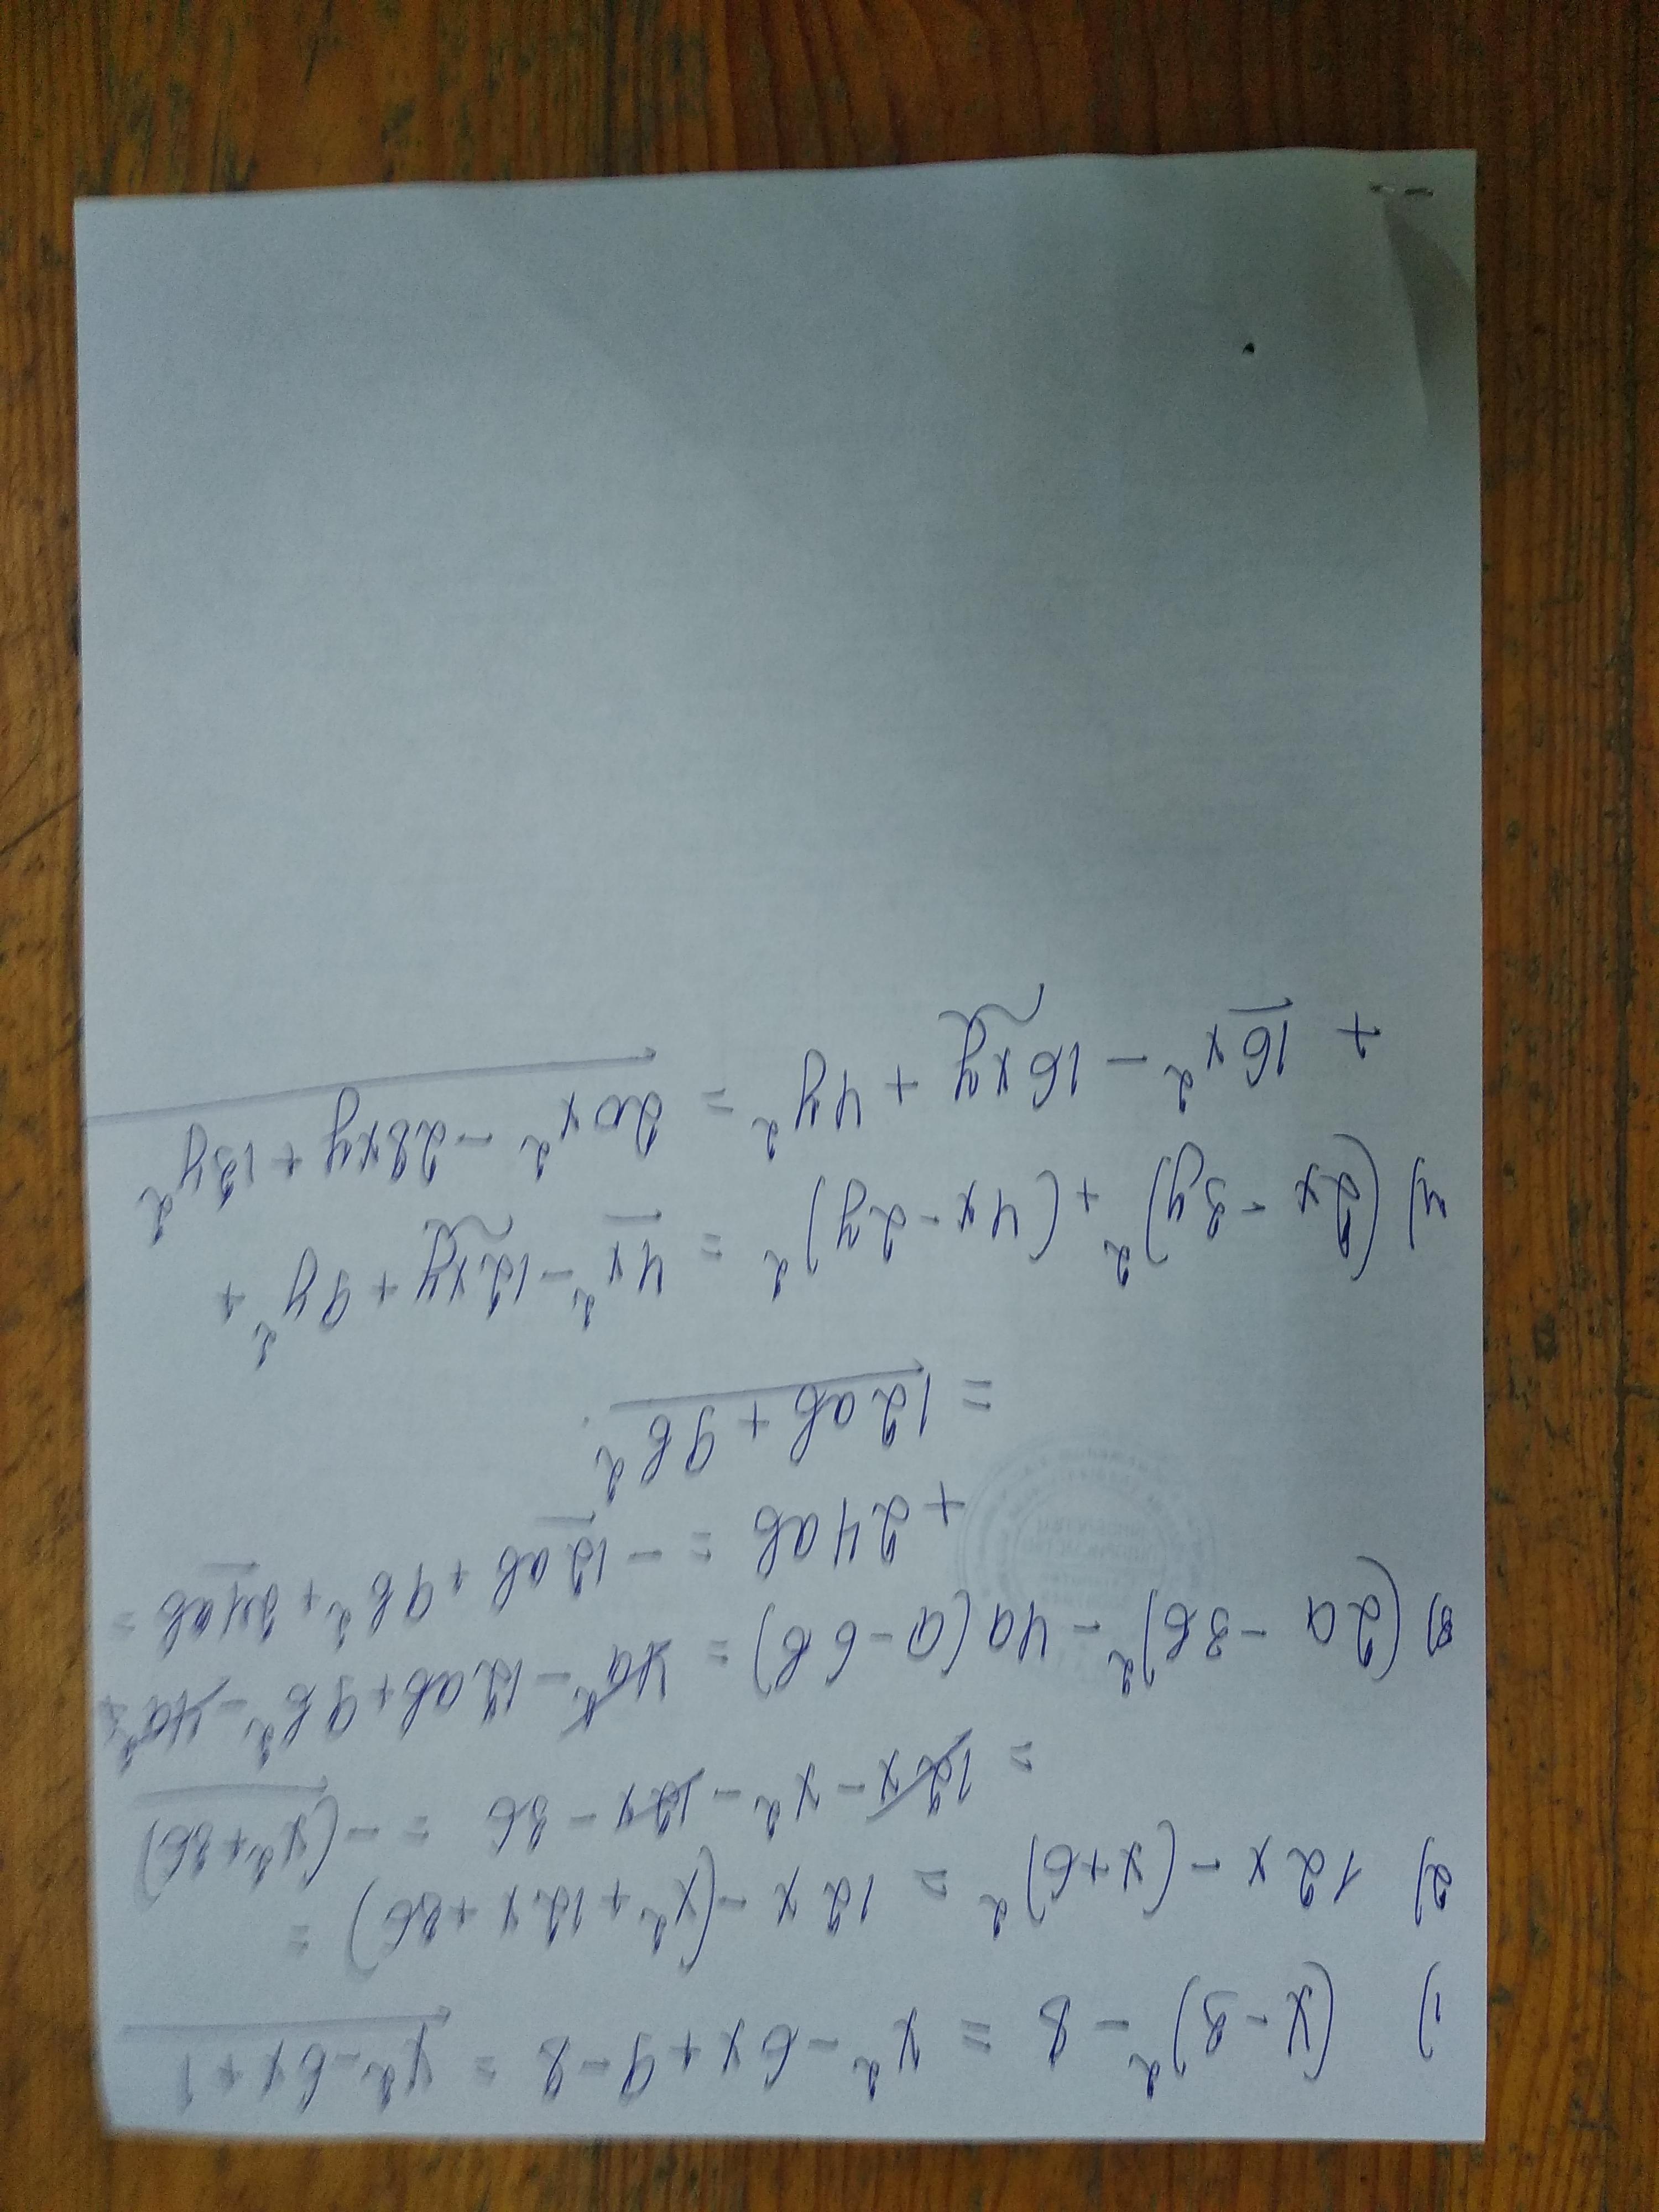 1) (x-3)² - 8 = x² - 6x + 9 - 8 = x² - 6x + 1
2) 12x - (x+6)² = 12x - (x² + 12x + 36) =
= 12x - x² - 12x - 36 = -(x² + 36)
3) (2a - 3b)² - 4a(a - 6b) = 4a² - 12ab + 9b² - 4a² +
+ 24ab = -12ab + 9b² + 24ab =
= 12ab + 9b².
4) (2x - 3y)² + (4x - 2y)² = 4x² - 12xy + 9y² +
+ 16x² - 16xy + 4y² = 20x² - 28xy + 13y²